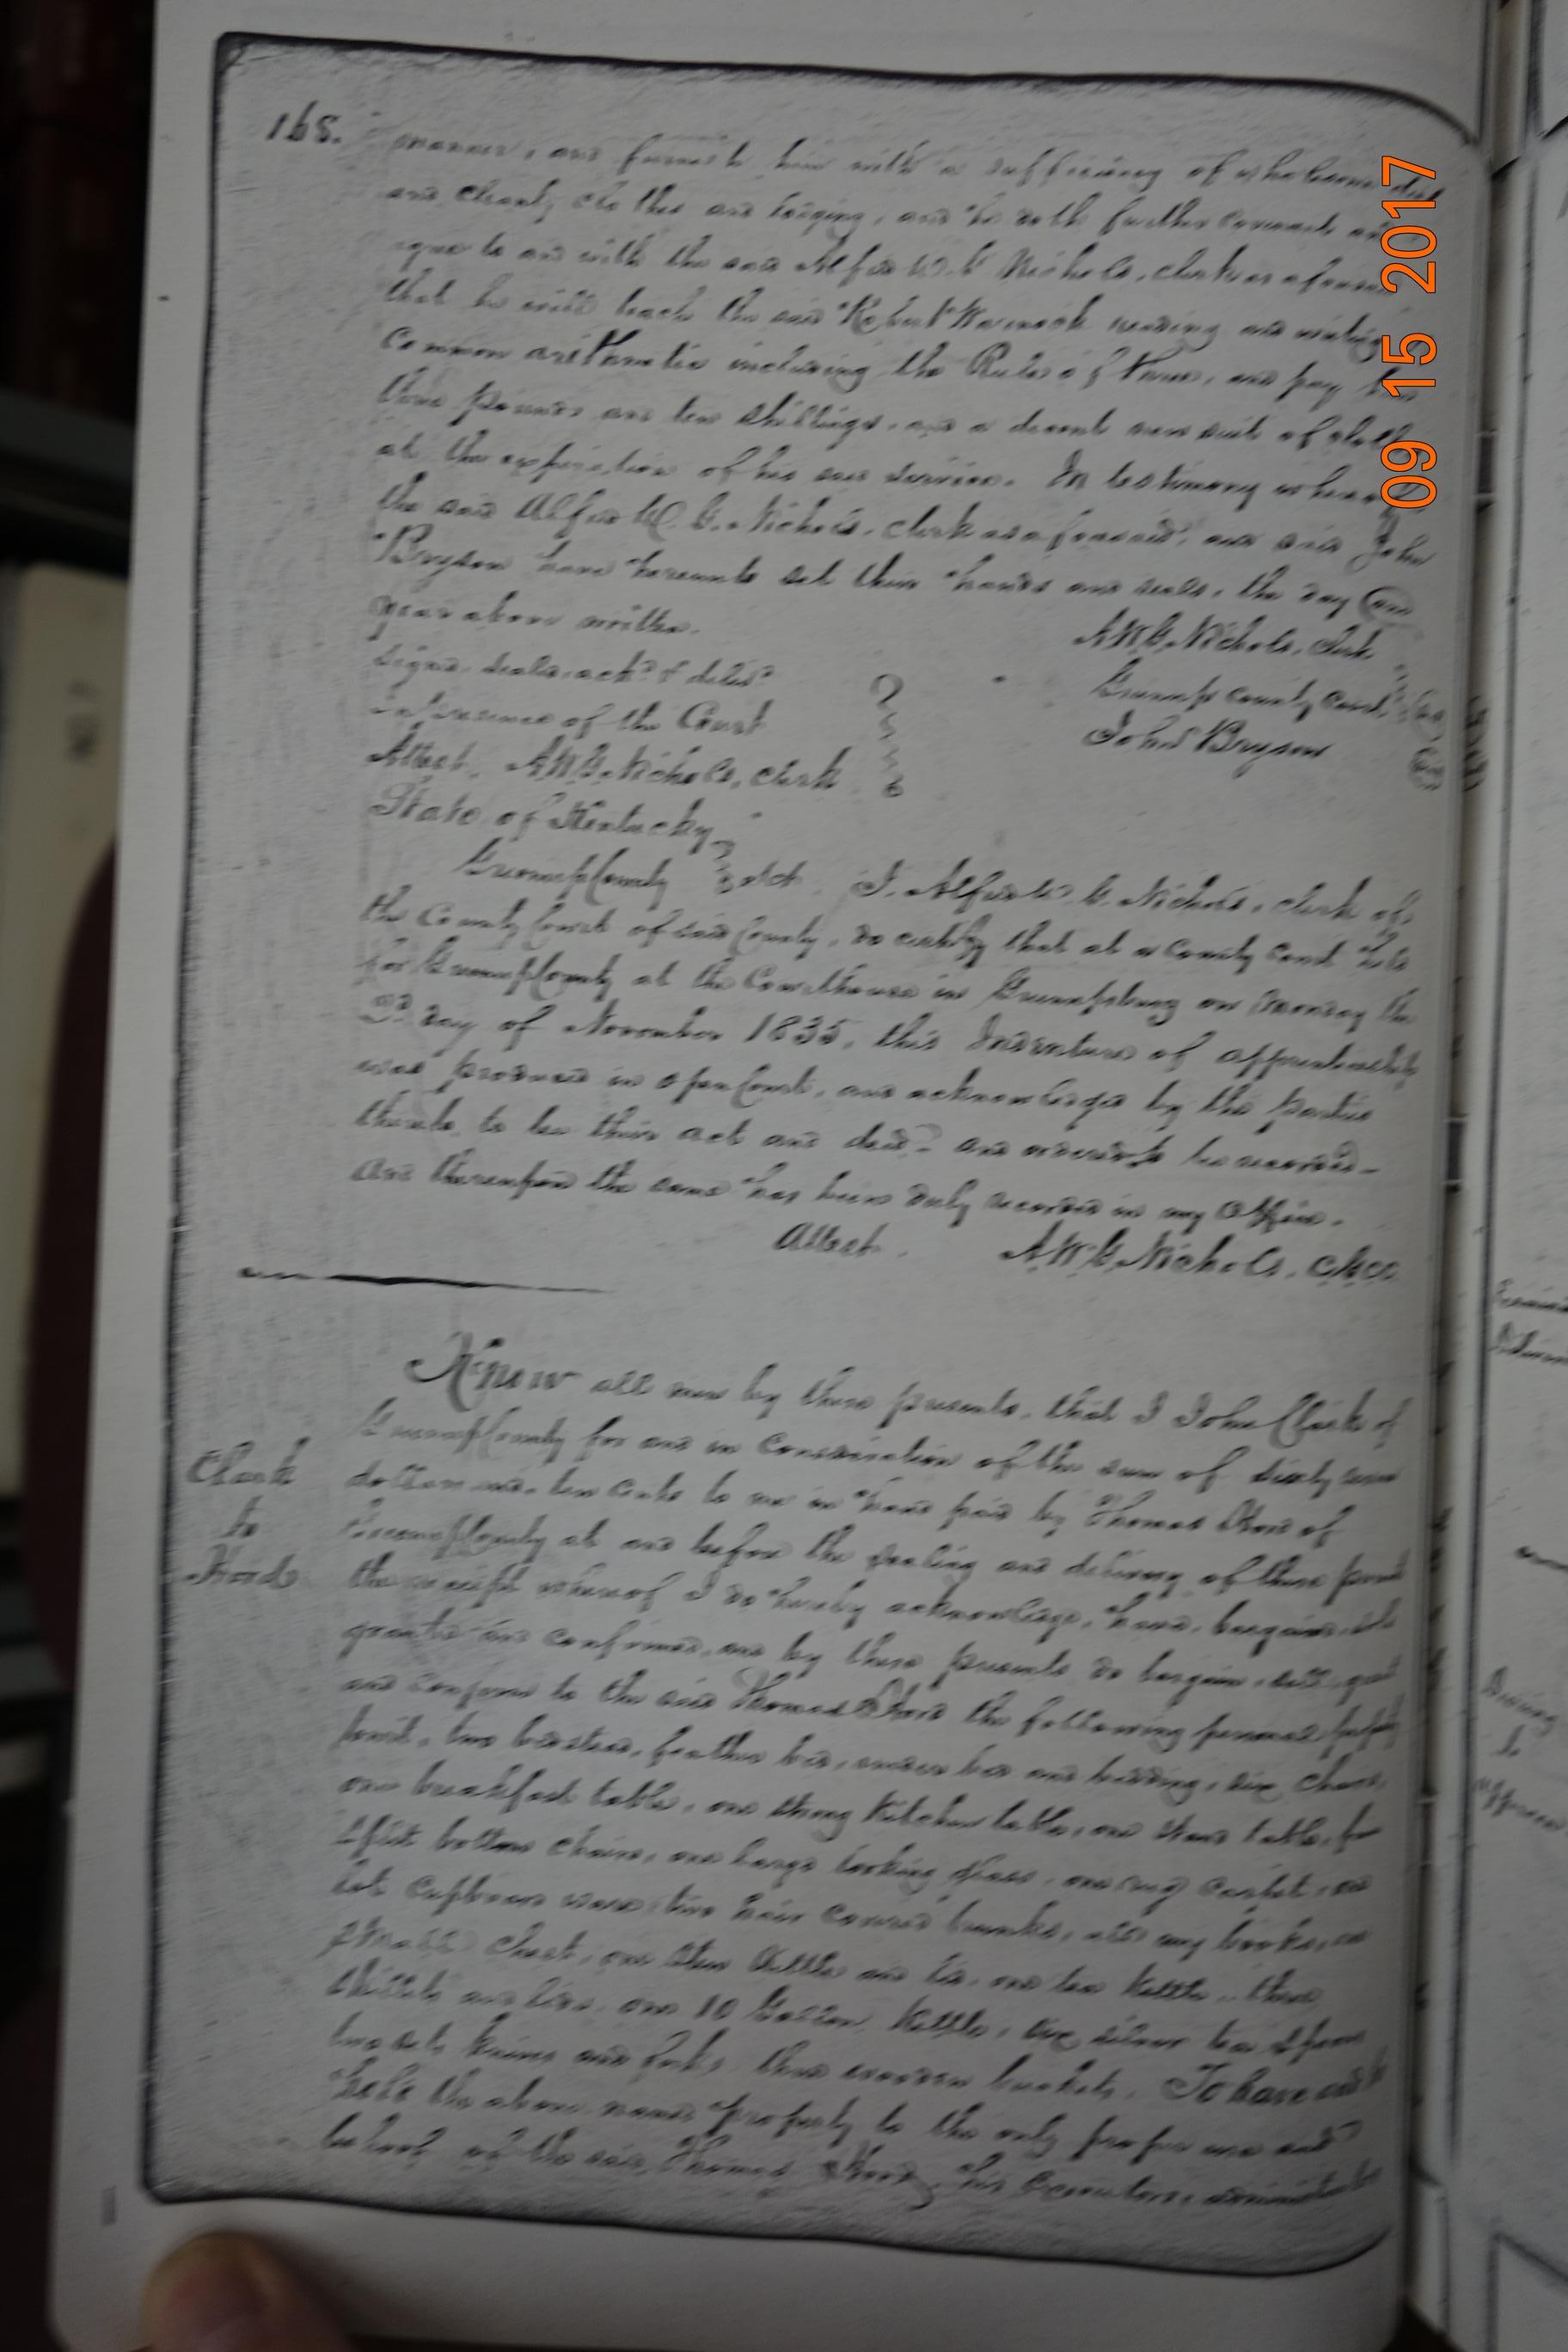 168.
manner, and furnish him with a sufficiency of wholesome diet
and cleanly clothes and lodging, and he doth further covenant and
agree to and with the said Alfred W. G. Nichols, clerk as aforesaid
that he will teach the said Robert Warnock reading and writing
Common arithmetic including the Rule of Three, and pay him
three pounds and ten shillings, and a decent new suit of cloths
at the expiration of his said service. In testimony whereof
the said Alfred W. G. Nichols, clerk as aforesaid, and said John
Bryson have hereunto set their hands and seals, the day and
year above written.
A W G Nichols, Clerk
Signd, seald, ackd & delivd
Greenup County Court
in presence of the Court
John Bryson
Attest, A W G Nichols, clerk
State of Kentucky
Greenup County Sct. I, Alfred W. G. Nichols, clerk of
the County Court of said County, do certify that at a County Court held
for Greenup County at the Courthouse in Greenupsburg on Monday the
day of November 1835, this Indenture of apprenticeship
was produced in open Court, and acknowledged by the parties
thereto, to be their act and deed - and ordered to be recorded -
And thereupon the same has been duly recorded in my Office.
Attest. A. W. G. Nichols, Clk
Know all men by these presents, that I John Clark of
Greenup County for and in Consideration of the sum of sixty seven
Clark
dollars and ten cents to me in hand paid by Thomas Hord of
to
Greenup County at and before the sealing and delivery of these presents
Hord
the receipt whereof I do hereby acknowledge, have, bargained, sold
granted and confirmed, and by these presents do bargain, sell, grant
and confirm to the said Thomas Hord the following personal property
towit, two bedsteads, feather bed, under bed and bedding, six chairs,
one breakfast table, one strong Kitchen table, one stand table, four
split bottom chairs, one large looking glass, one rug carpet, one
lot cupboard ware, two hair covered trunks, all my books, one
small chest, one stew kettle and lid, one tea kettle, three
skillets and lids, one 10 Gallon Kettle, six silver tea spoons
two sets knives and forks, three wooden buckets. To have and to
hold the above named property to the only proper use and
behoof of the said Thomas Hord, his executors, administrators
09 15 2017